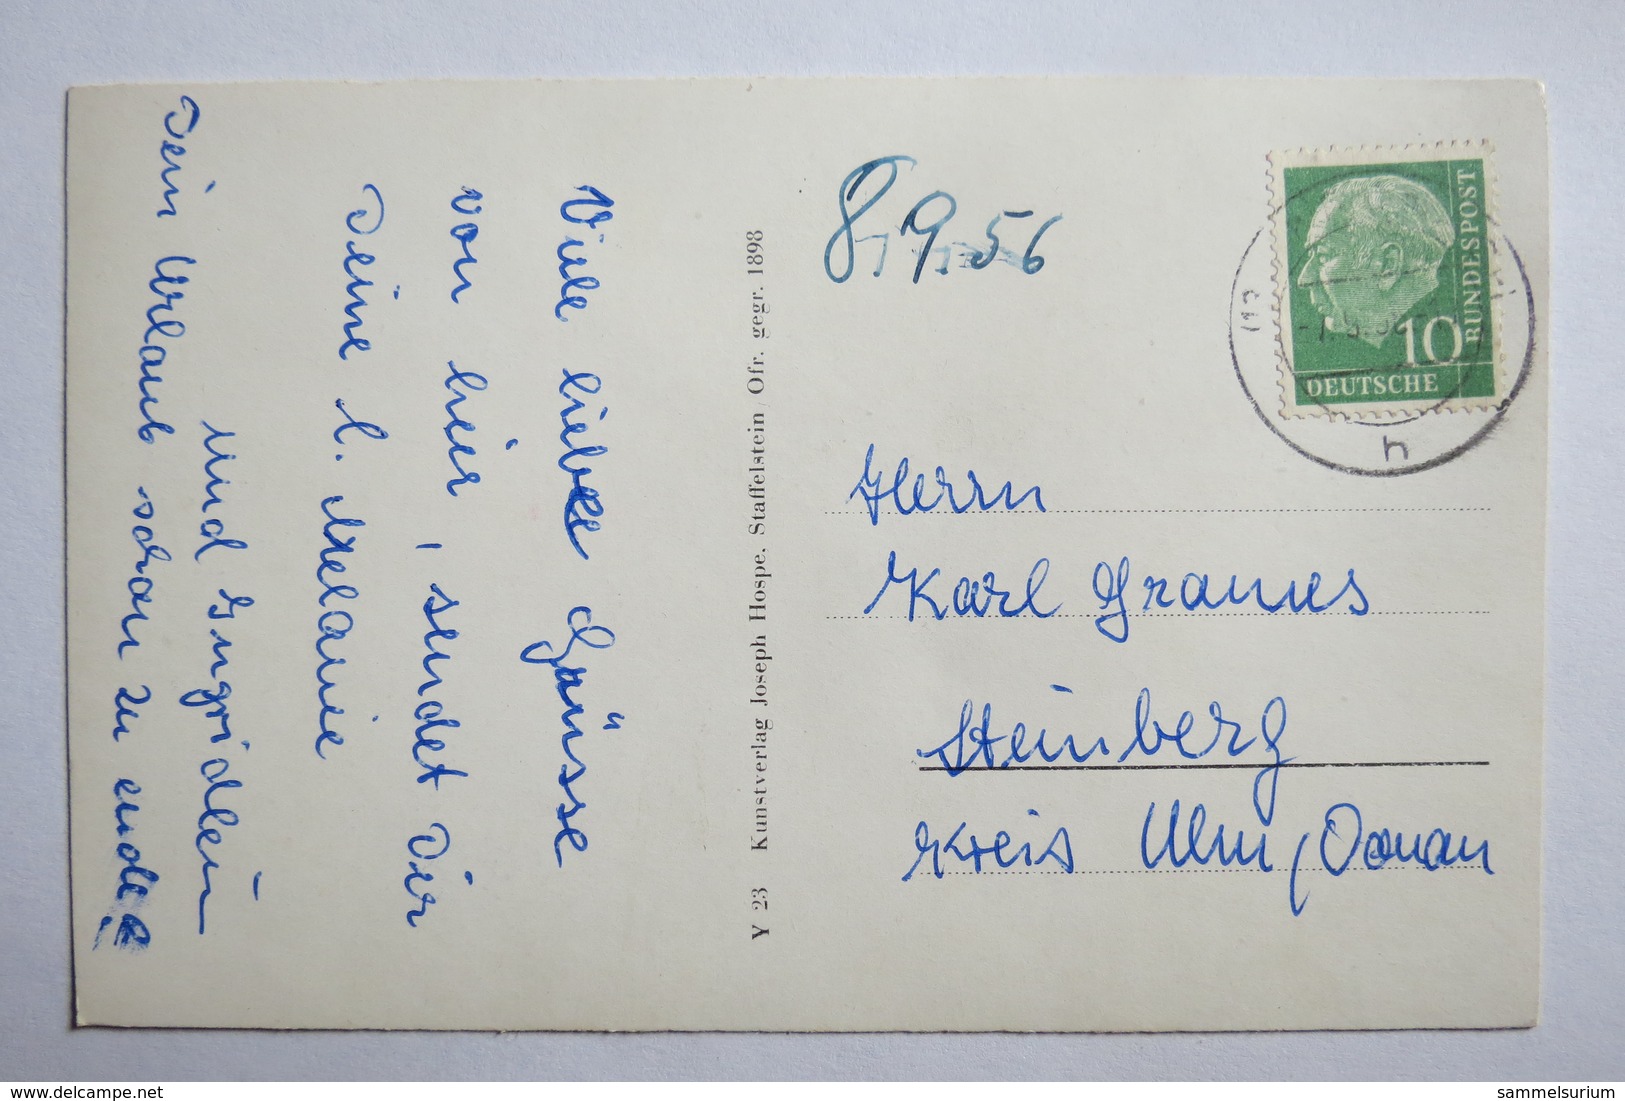 Viele liebe Grüsse
von hier, sendet Dir
Deine l. Melanie
und Ingridlein
Dein Urlaub schon zu ende?
Y 23 Kunstverlag Joseph Hospe, Staffelstein/Ofr. gegr. 1898
8.9.56
DEUTSCHE
BUNDESPOST
10
h
Herrn
Karl Gramus
Steinberg
Kreis Ulm/Donau
http://www.delcampe.net
sammelsurium